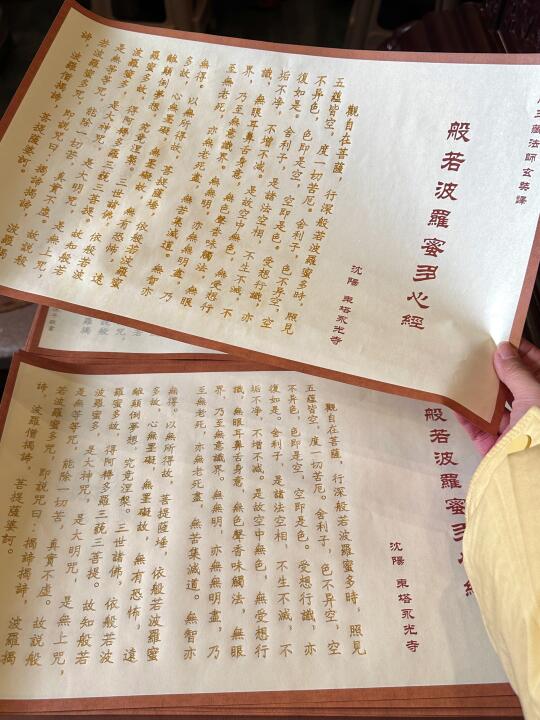 三藏法師玄奘譯
般若波羅蜜多心經
沈陽 東塔永光寺
觀自在菩薩，行深般若波羅蜜多時，照見
五蘊皆空，度一切苦厄。舍利子，色不異空，空
不異色，色即是空，空即是色。受想行識，亦
復如是。舍利子，是諸法空相，不生不滅，不
垢不淨，不增不減。是故空中無色，無受想行
識，無眼耳鼻舌身意，無色聲香味觸法，無眼
界，乃至無意識界。無無明，亦無無明盡，乃
至無老死，亦無老死盡，無苦集滅道。無智亦
無得。以無所得故，菩提薩埵，依般若波羅蜜
多故，心無罣礙，無罣礙故，無有恐怖，遠
離顛倒夢想，究竟涅槃。三世諸佛，依般若波
羅蜜多故，得阿耨多羅三藐三菩提。故知般若
波羅蜜多，是大神咒，是大明咒，是無上咒，
是無等等咒，能除一切苦，真實不虛。故說般
若波羅蜜多咒，即說咒曰：揭諦揭諦，波羅揭
諦，波羅僧揭諦，菩提薩婆訶。
般若波羅蜜多心經
沈陽 東塔永光寺
觀自在菩薩，行深般若波羅蜜多時，照見
五蘊皆空，度一切苦厄。舍利子，色不異空，空
不異色，色即是空，空即是色。受想行識，亦
復如是。舍利子，是諸法空相，不生不滅，不
垢不淨，不增不減。是故空中無色，無受想行
識，無眼耳鼻舌身意，無色聲香味觸法，無眼
界，乃至無意識界。無無明，亦無無明盡，乃
至無老死，亦無老死盡，無苦集滅道。無智亦
無得。以無所得故，菩提薩埵，依般若波羅蜜
多故，心無罣礙，無罣礙故，無有恐怖，遠
離顛倒夢想，究竟涅槃。三世諸佛，依般若波
羅蜜多故，得阿耨多羅三藐三菩提。故知般若
波羅蜜多，是大神咒，是大明咒，是無上咒，
是無等等咒，能除一切苦，真實不虛。故說般
若波羅蜜多咒，即說咒曰：揭諦揭諦，波羅揭
諦，波羅僧揭諦，菩提薩婆訶。